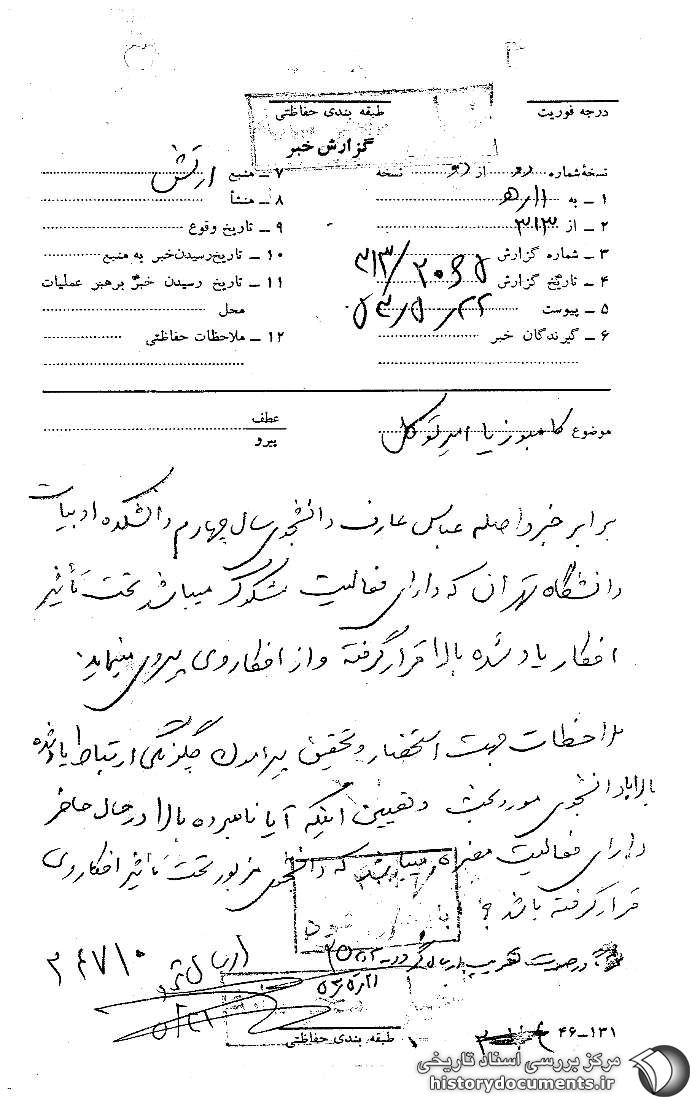 درجه فوریت
طبقه بندی حفاظتی
گزارش خبر
نسخهٔ شماره دو از دو نسخه
۱ ـ به ۱۱ ره‍
۲ ـ از ۳۱۳
۳ ـ شماره گزارش
۴ ـ تاریخ گزارش
۵ ـ پیوست
۶ ـ گیرندگان خبر
۷ ـ منبع ارتش
۸ ـ منشأ
۹ ـ تاریخ وقوع
۱۰ ـ تاریخ رسیدن خبر به منبع
۱۱ ـ تاریخ رسیدن خبر برهبر عملیات
محل
۱۲ ـ ملاحظات حفاظتی
موضوع کامبوزیا امیرتوکل
عطف
پیرو
برابر خبر واصله عباس عارف دانشجوی سال چهارم دانشکده ادبیات
دانشگاه تهران که دارای فعالیت مشکوک میباشد تحت تأثیر
افکار یاد شده بالا قرار گرفته و از افکار وی پیروی مینماید.
ملاحظات جهت استحضار و تحقیق پیرامون چگونگی ارتباط یاد شده
بالا با دانشجوی مورد بحث و تعیین اینکه آیا نامبرده بالا در حال حاضر
دارای فعالیت مضره میباشد که دانشجوی مزبور تحت تأثیر افکار وی
قرار گرفته باشد ؟
در صورت تصویب ارسال گردد
ارسال شد
۳۶۷۱۰
۴۶ـ۱۳۱
طبقه بندی حفاظتی
مرکز بررسی اسناد تاریخی
historydocuments.ir